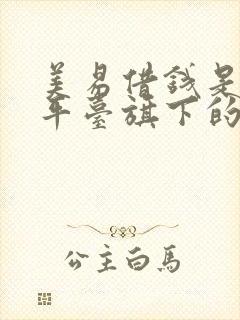 美易借錢是
平臺旗下的
公主白馬